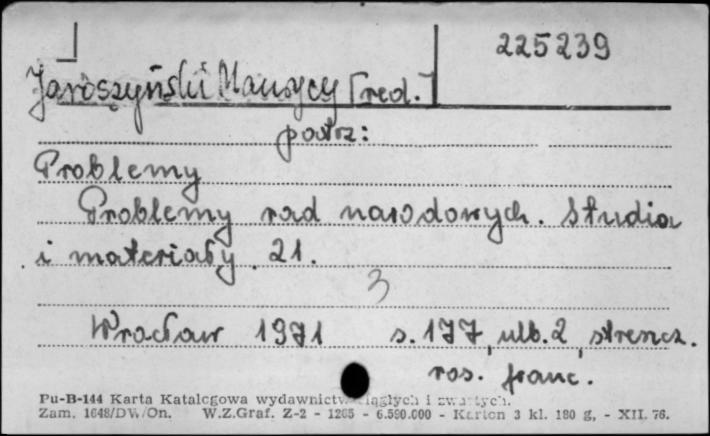 225239
Jaroszyński Maurycy [red.]
patrz:
Problemy
Problemy rad narodowych. Studia
i materiały 21.
3
Wrocław 1971 s. 177, ulb. 2, streszcz.
ros. franc.
Pu-B-144 Karta Katalogowa wydawnictw ciągłych i zwartych.
Zam. 1648/DW/On. W.Z.Graf. Z-2 - 1265 - 6.590.000 - Karton 3 kl. 180 g, - XII. 76.